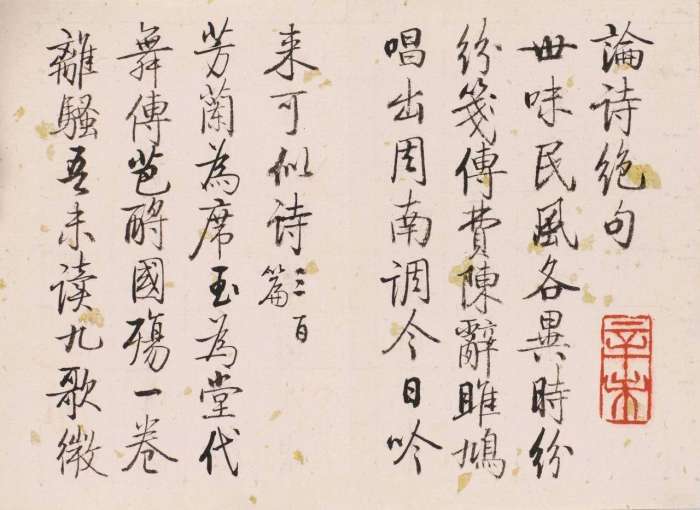 論诗絶句
世味民風各異時紛
紛箋傳費陳辭雎鳩
唱出周南调今日吟
来可似诗三百篇
芳蘭為席玉為堂代
舞傳芭酹國殤一卷
離騷吾未读九歌微
辛未